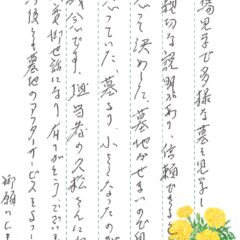 場見学まで多様な墓を見学し
親切な説明があり、信頼できると
思って決めました。墓地がせまいので
思っていた、墓より、小さくなったのが
残念です。担当者の久松さんに
変御世話になり有りがとうございま
今後とも墓地のアフターサービスをよろし
御願いしま